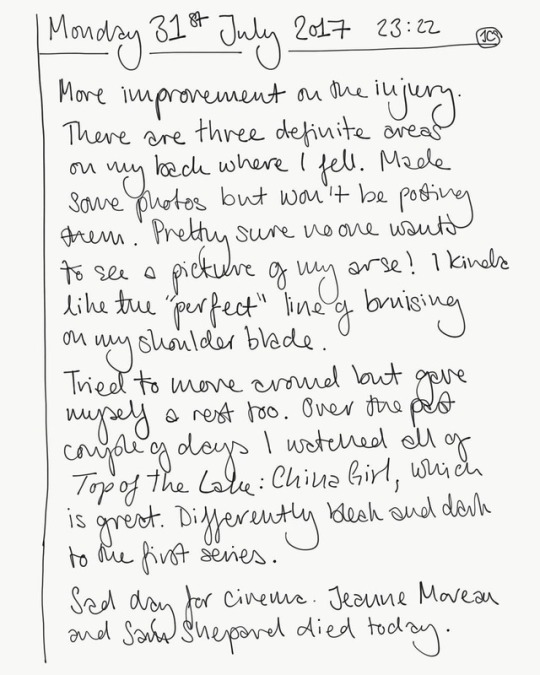 Monday 31st July 2017 23:22
More improvement on the injury.
There are three definite areas
on my back where I fell. Made
some photos but won't be posting
them. Pretty sure no one wants
to see a picture of my arse! I kinda
like the "perfect" line of bruising
on my shoulder blade.
Tried to move around but gave
myself a rest too. Over the past
couple of days I watched all of
Top of the Lake: China Girl, which
is great. Differently bleak and dark
to the first series.
Sad day for cinema. Jeanne Moreau
and Sam Shepard died today.